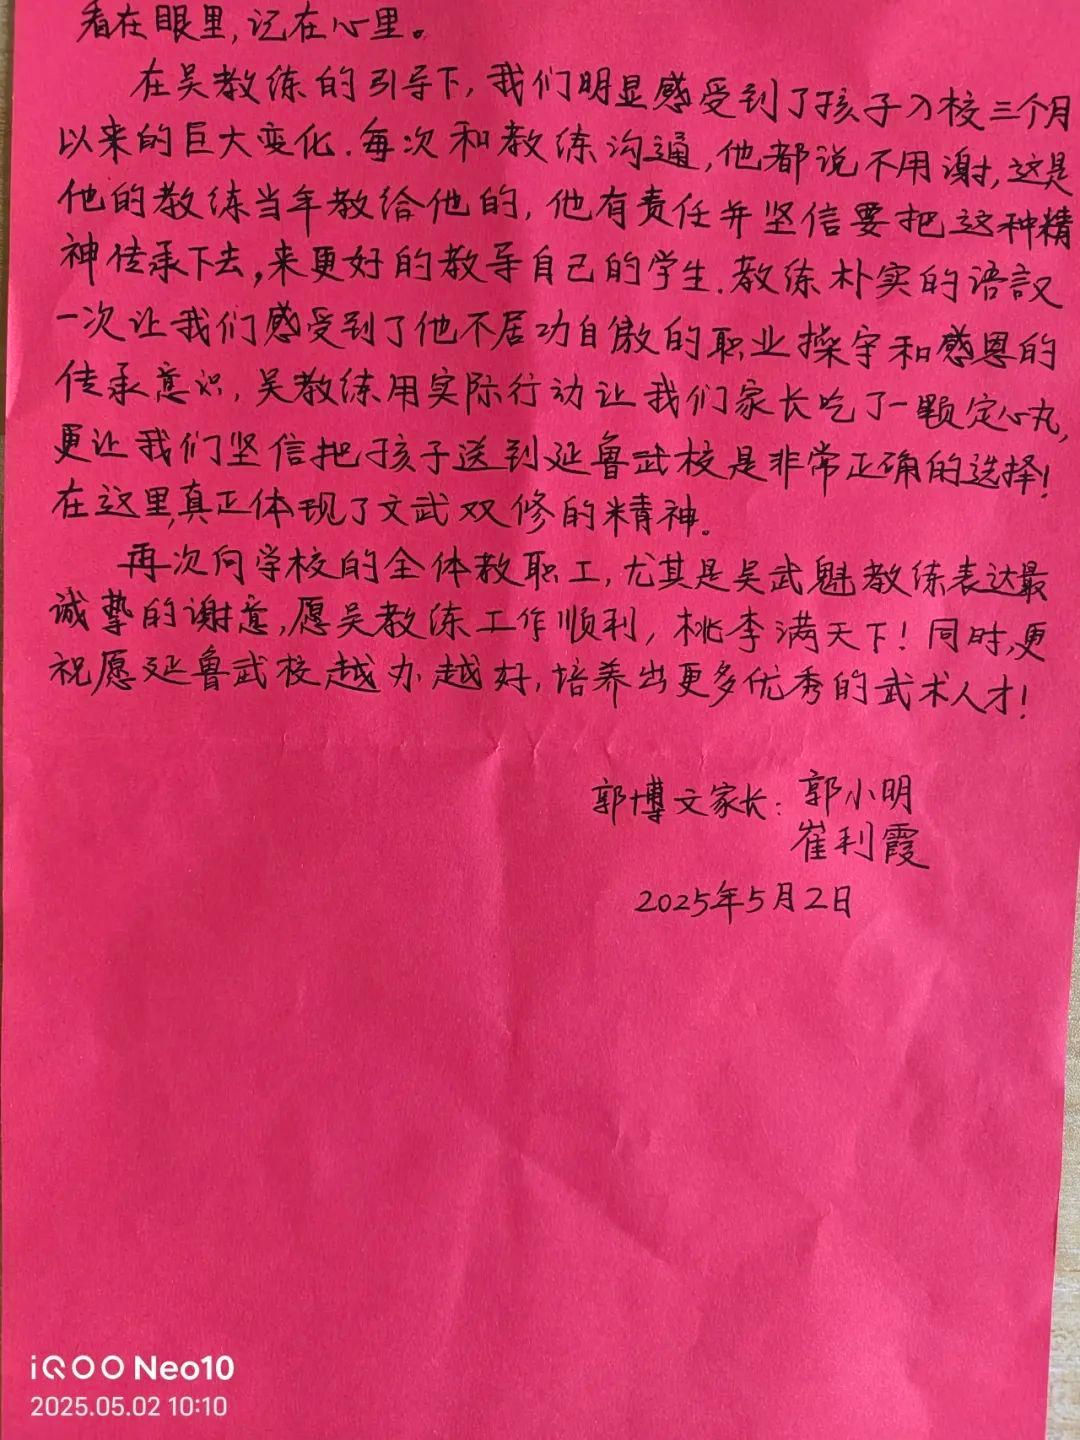 看在眼里,记在心里。
在吴教练的引导下,我们明显感受到了孩子入校三个月
以来的巨大变化.每次和教练沟通,他都说不用谢,这是
他的教练当年教给他的,他有责任并坚信要把这种精
神传承下去,来更好的教导自己的学生.教练朴实的语言又
一次让我们感受到了他不居功自傲的职业操守和感恩的
传承意识,吴教练用实际行动让我们家长吃了一颗定心丸,
更让我们坚信把孩子送到延鲁武校是非常正确的选择!
在这里,真正体现了文武双修的精神。
再次向学校的全体教职工,尤其是吴武魁教练表达最
诚挚的谢意,愿吴教练工作顺利,桃李满天下!同时,更
祝愿延鲁武校越办越好,培养出更多优秀的武术人才!
郭博文家长:郭小明
崔利霞
2025年5月2日
iQOO Neo10
2025.05.02 10:10